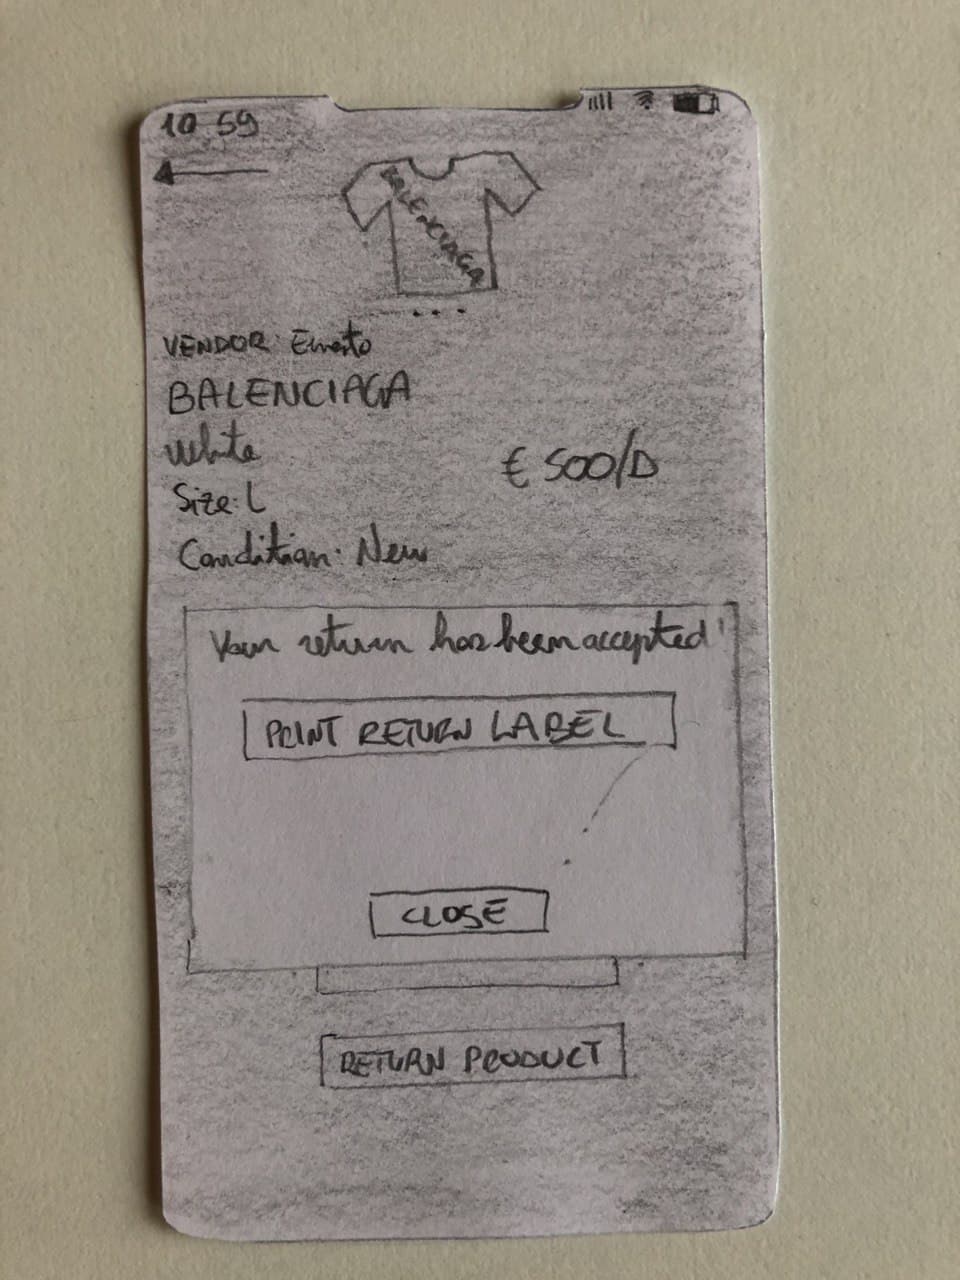 10 59
BALENCIAGA
VENDOR: Ernesto
BALENCIAGA
White
€ 500/D
Size: L
Condition: New
Your return has been accepted!
PRINT RETURN LABEL
CLOSE
RETURN PRODUCT